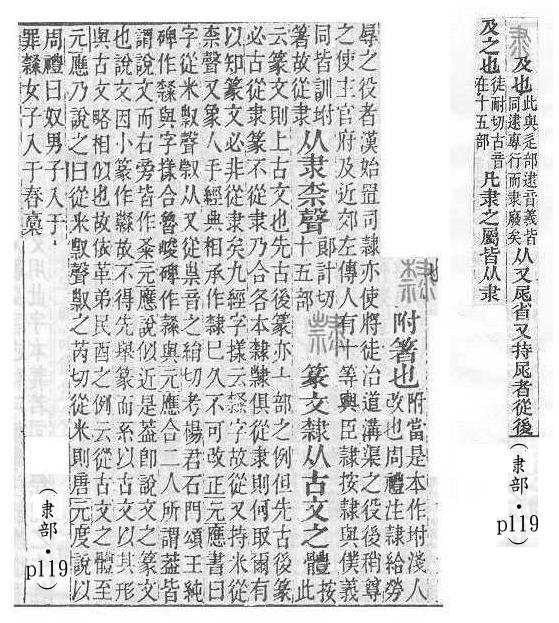 隶 及也 此與辵部逮音義皆
同逮專行而隶廢矣 从又尾省又持尾者從後
(隶部・p119)
及之也 徒耐切古音
在十五部 凡隶之屬皆从隶
隸 附箸也 附當是本作坿淺人
改也周禮注隸給勞
辱之役者漢始置司隸亦使將徒治道溝渠之役後稍尊
之使主官府及近郊左傳人有十等輿臣隸按隸與僕義
同皆訓坿
箸故從隶 从隶柰聲 郎計切
十五部 篆文隸从古文之體 按
此
云篆文則上古文也先古後篆亦丄部之例但先古後篆
必古從隶篆不從隶乃合各本隸俱從隶則何取爾有
以知篆文必非從隶矣九經字樣云隸字故從又持米從
柰聲又象人手經典相承作隸已久不可改正元應書曰
字從米㪏聲㪏从又從祟音之切考楊君石門頌王純
碑作䅏與字樣合魯峻碑作䅏與元應合二人所謂葢皆
謂說文而右旁皆作柰元應說似近是葢卽說文之篆文
也說文因小篆作故不得先舉篆而系以古文以其形
與古文略相似也故依革弟民酉之例云從古文之體至
元應乃說之曰從米㪏聲㪏之芮切從米則唐元度說以
周禮曰奴男子入于
罪䅏女子入于舂槀
(隶部・p119)